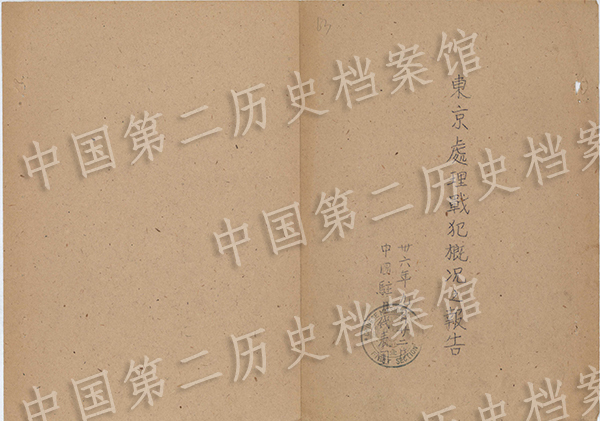 63
東京處理戰犯概况之報告
卅六年
中國駐日代表團
中国第二历史档案馆
中国第二历史档案馆
中国第二历史档案馆
中国第二历史档